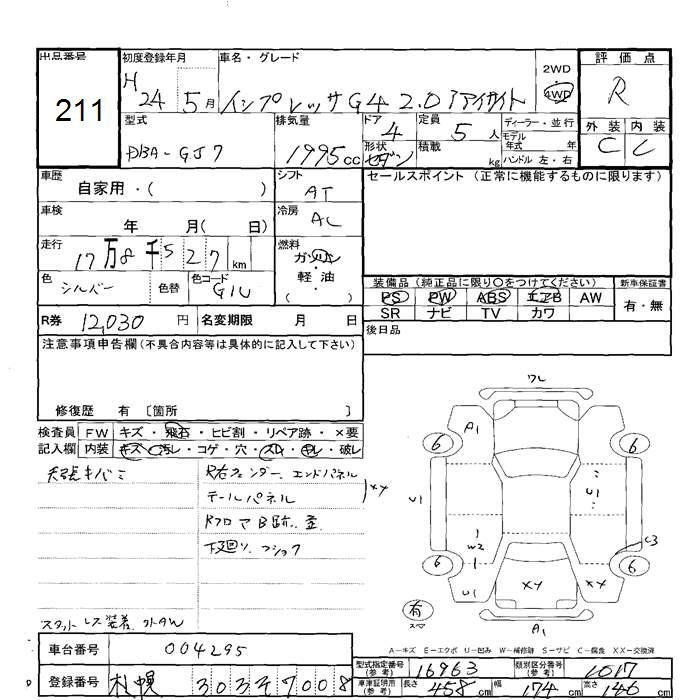 出品番号
211
初度登録年月
H 24 5月
車名・グレード
インプレッサG4 2.0iアイサイト
2WD
4WD
評価点
R
外装 内装
C C
型式
DBA-GJ7
排気量
1995cc
ドア
4
形状
セダン
定員
5人
積載
kg
ディーラー・並行
モデル年式 年
ハンドル 左・右
車歴
自家用・( )
シフト
AT
車検
年 月( 日)
冷房
AC
走行
17万8千527km
燃料
ガソリン
軽・油
( )
色
シルバー
色替
色コード
G1U
セールスポイント(正常に機能するものに限ります)
装備品(純正品に限り○をつけてください)
PS PW ABS エアB AW
SR ナビ TV カワ
新車保証書
有・無
R券 12,030円
名変期限 月 日
後日品
注意事項申告欄(不具合内容等は具体的に記入して下さい)
修復歴 有〔箇所 〕
検査員
記入欄
FW キズ・飛石・ヒビ割・リペア跡・×要
内装 キズ・汚レ・コゲ・穴・スレ・キレ・破レ
天張キバミ
R右フェンダー、エンドパネル
テールパネル
XX
下廻り
スタットレス装着
ワレ
A1
6
6
U1
U1
W2
C3
6
6
U1
XX
XX
有
スペア
A1
A-キズ E-エクボ U-凹み W-補修跡 S-サビ C-腐食 XX-交換済
車台番号
004295
登録番号
札幌 303 4 7008
型式指定番号
(参考)
16963
類別区分番号
(参考)
1017
車津証明用
(参考)
長さ 458cm
幅 174cm
高さ 146cm